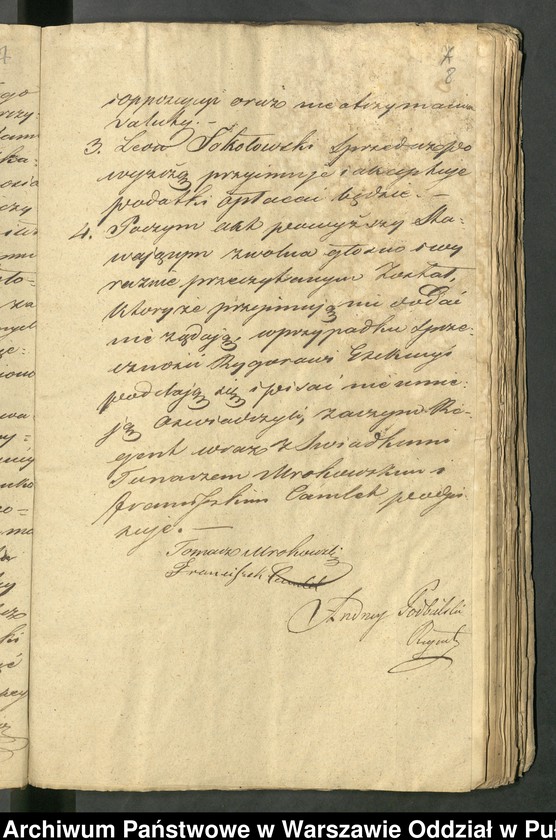 8
i oppozycyi oraz nieotrzymania
waluty. –
3. Leon Sokołowski sprzedaż po
wyższą przyimuje i akceptuje
podatki opłacać będzie. –
4. Poczym akt powyższy Sta-
wającym zwolna głośno i wy
raźnie przeczytanym został,
którzy że przyimują nic dodać
nie żądają, w przypadku sprze-
czności Rygorowi Exekucyi
poddają się i pisać nie umie-
ją oświadczyli, zaczym Re-
gent wraz z Świadkami
Tomaszem Mrokowskim i
Franciszkiem Camlet podpi-
suje. –
Tomasz Mrokowski
Franciszek Camlet
Andrzey Podbielski
Regent
Archiwum Państwowe w Warszawie Oddział w Pu